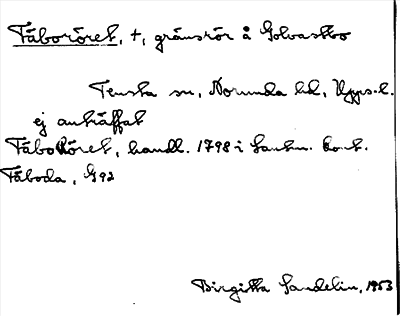 Fäboröret, +, gränsrör å Golvastbo
Tensta sn, Norunda hd, Upps. l.
ej anträffat
Fäboröret, handl. 1798 i Lantm. kont.
Fäboda, G 92
Birgitta Sandelin, 1953